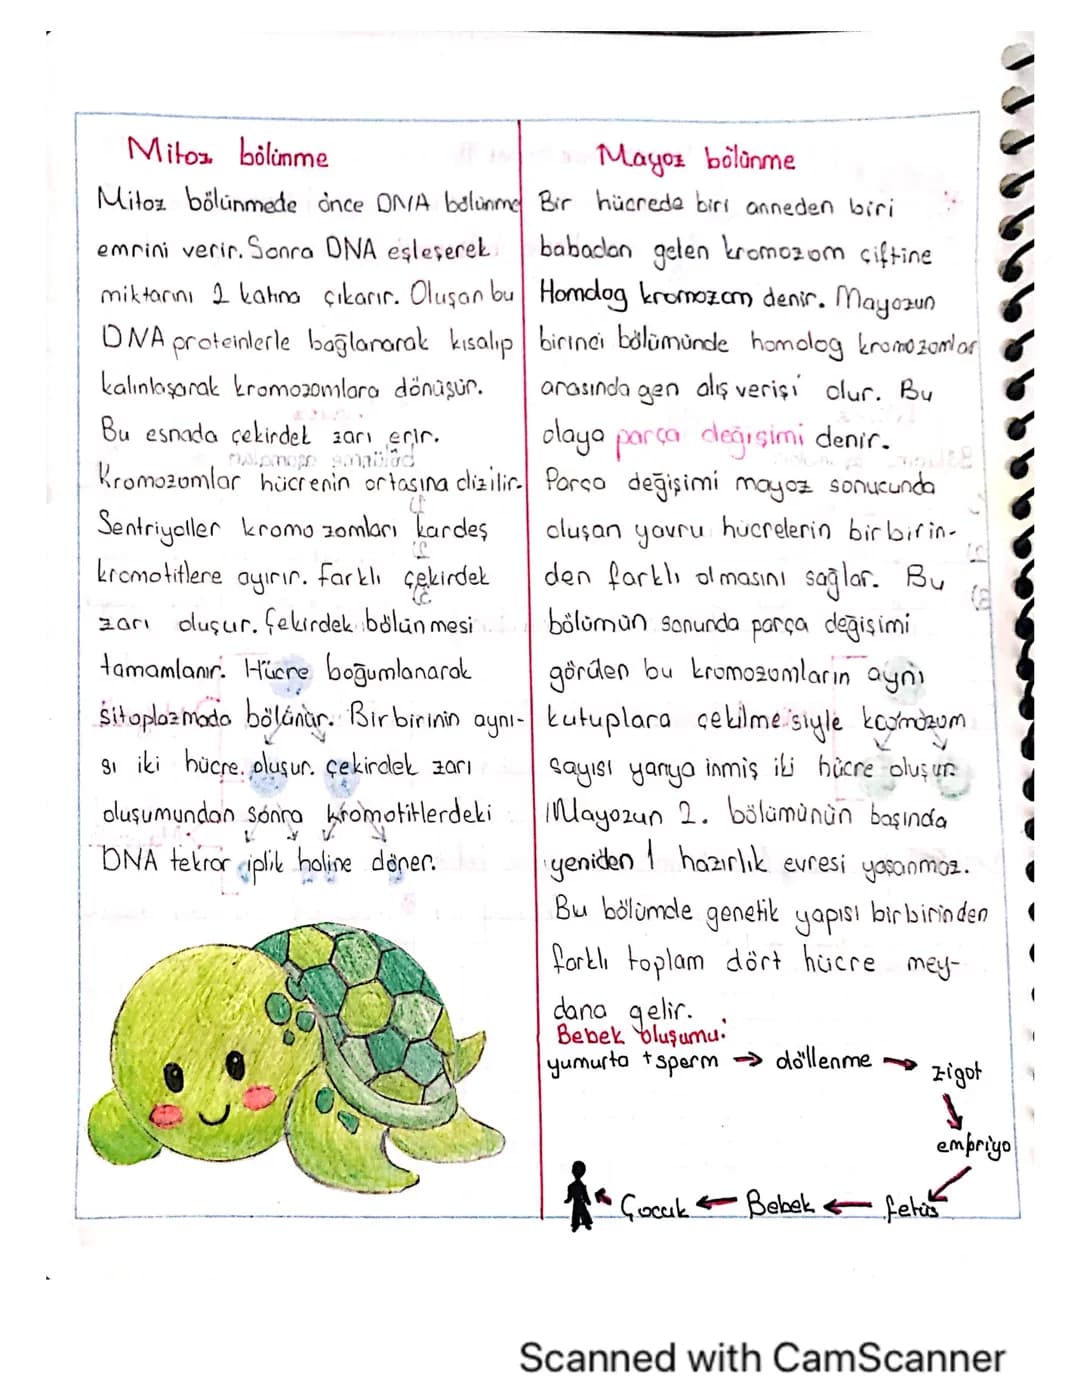 Mitoz bölünme
Mitoz bölünmede önce DNA bölünme
emrini verir. Sonra DNA eşleşerek
miktarını 2 katına çıkarır. Oluşan bu
DNA proteinlerle bağlanarak kısalıp
kalınlaşarak kromozomlara dönüşür.
Bu esnada çekirdek zarı erir.
Kromozomlar hücrenin ortasına dizilir.
Sentriyoller kromozomları kardeş
kromotitlere ayırır. Farklı çekirdek
zarı oluşur. Çekirdek bölünmesi
tamamlanır. Hücre boğumlanarak
sitoplazmada bölünür. Birbirinin aynı-
sı iki hücre oluşur. çekirdek zarı
oluşumundan sonra kromotitlerdeki
DNA tekrar iplik haline döner.
Mayoz bölünme
Bir hücrede biri anneden biri
babadan gelen kromozom çiftine
Homolog kromozom denir. Mayozun
birinci bölümünde homolog kromozomlar
arasında gen alış verişi olur. Bu
olaya parça değişimi denir.
Parça değişimi mayoz sonucunda
oluşan yavru hücrelerin birbirin-
den farklı olmasını sağlar. Bu
bölümün sonunda parça değişimi
görülen bu kromozomların aynı
kutuplara çekilmesiyle kromozom
sayısı yarıya inmiş iki hücre oluşur
Mayozun 2. bölümünün başında
yeniden 1 hazırlık evresi yaşanmaz.
Bu bölümde genetik yapısı birbirinden
farklı toplam dört hücre mey-
dana gelir.
Bebek oluşumu:
yumurta + sperm → döllenme → zigot
empriyo
Çocuk ← Bebek ← fetüs
Scanned with CamScanner